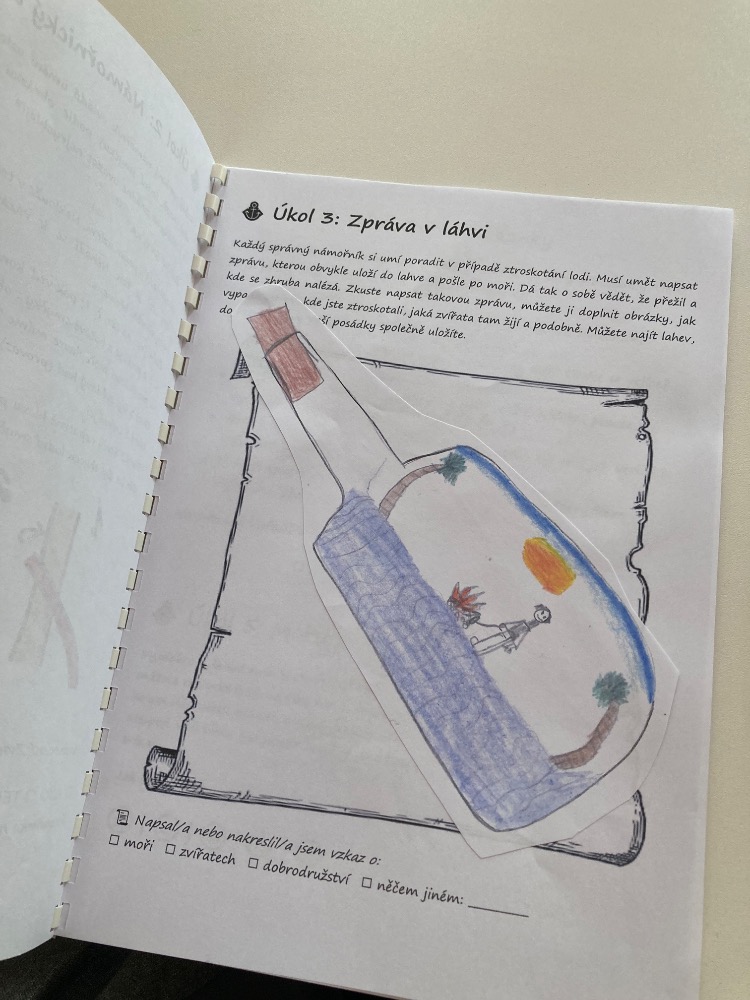 Úkol 3: Zpráva v láhvi
Každý správný námořník si umí poradit v případě ztroskotání lodi. Musí umět napsat
zprávu, kterou obvykle uloží do lahve a pošle po moři. Dá tak o sobě vědět, že přežil a
kde se zhruba nalézá. Zkuste napsat takovou zprávu, můžete ji doplnit obrázky, jak
kde jste ztroskotali, jaká zvířata tam žijí a podobně. Můžete najít lahev,
posádky společně uložíte.
Napsal/a nebo nakreslil/a jsem vzkaz o:
□ moři □ zvířatech □ dobrodružství □ něčem jiném: ________